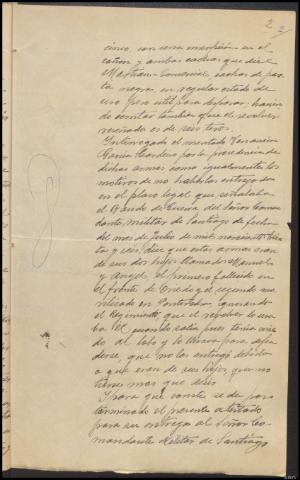 2 2
cinco, con una inscripción en el
cañon y ambas cachas que dice
Martian Comercial, cachas de pas-
ta negra, en regular estado de
uso pero util para disparar; hacien-
do constar tambien que el revolver
reseñado es de seis tiros.
Interrogado el mentado
Garcia Cordero por la procedencia de
dichas armas como igualmente los
motivos de no haberlas entregado
en el plazo legal que señalaba
el Bando de Guerra del Señor Coman-
dante militar de Santiago de fecha
del mes de Julio de mil novecientos trein-
ta y seis, dice que estas armas eran
de sus dos hijos llamados Manuel
y Angel, el primero fallecido en
el frente de Oviedo y el segundo mo-
vilizado en Pontevedra, ignorando
el Regimiento, que el revolver lo usa-
ba el cuando salia pues tenia mie-
do al lobo y lo llevaba para defen-
derse, que no las entregó debido
a que eran de sus hijos, que no
tiene mas que decir.
Y para que conste se da por
terminado el presente atestado
para su entrega al Señor Co-
mandante Militar de Santiago